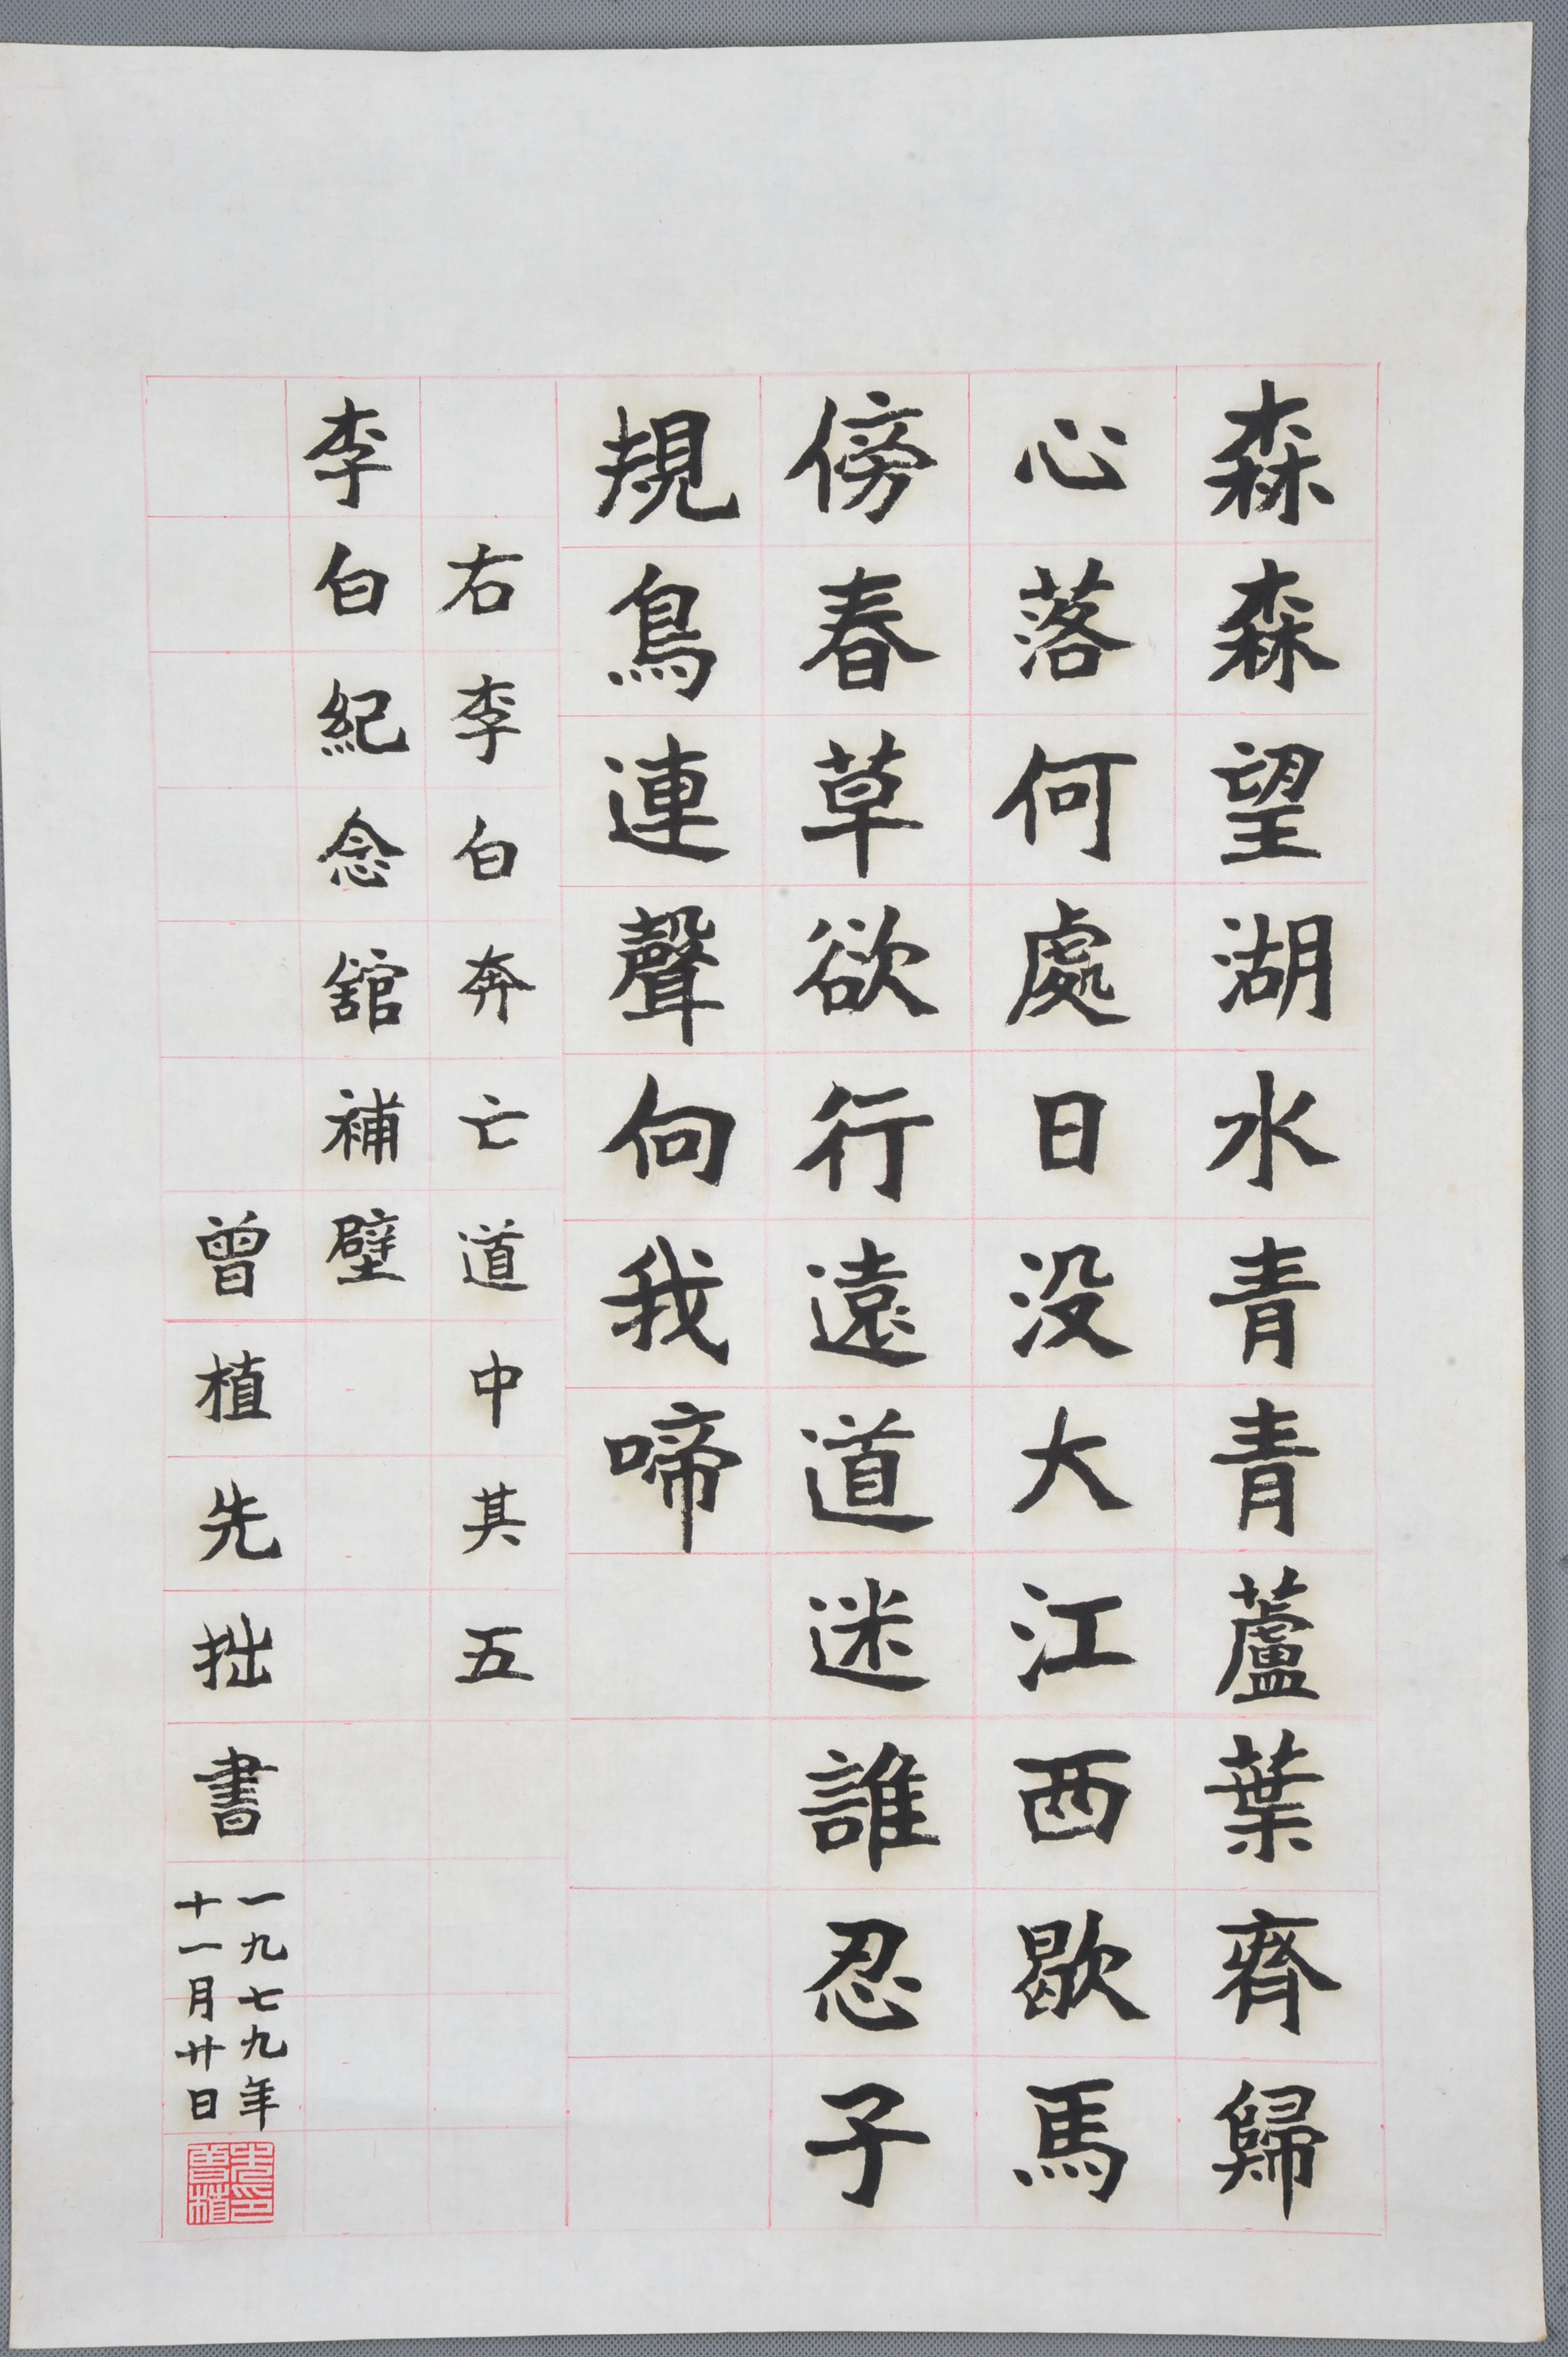 森森望湖水青青蘆葉齊歸
心落何處日没大江西歇馬
傍春草欲行遠道迷誰忍子
規鳥連聲向我啼
右李白奔亡道中其五
李白紀念舘補壁
曾植先拙書
一九七九年
十一月廿日
先印
曾植